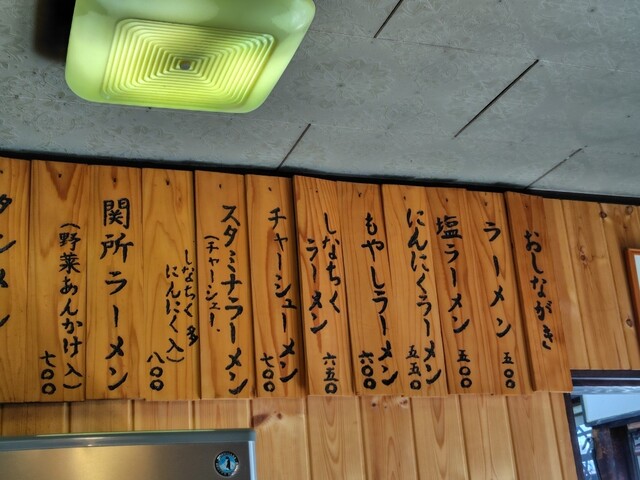 おしながき
ラーメン 五〇〇
塩ラーメン 五〇〇
にんにくラーメン 五五〇
もやしラーメン 六〇〇
しなちく
ラーメン 六五〇
チャーシューメン 七〇〇
スタミナラーメン
(チャーシュー、
しなちく多
にんにく入) 八〇〇
関所ラーメン
(野菜あんかけ入)
七〇〇
タンメン